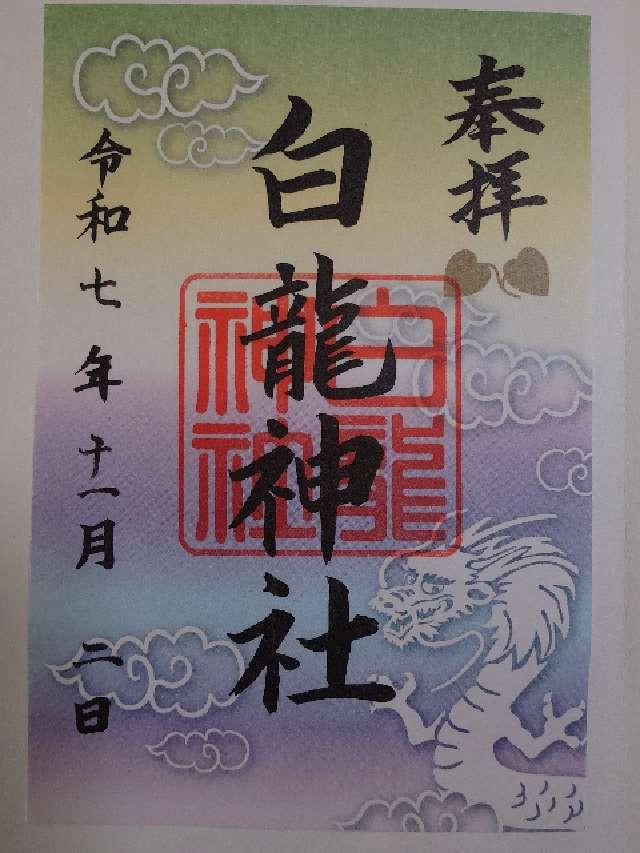 奉拝
白龍神社
白龍神社
令和七年十一月二日